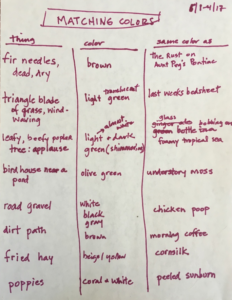 8/1-4/17
MATCHING COLORS
thing color same color as
fir needles, dead, dry brown the rust on Aunt Peg's Pontiac
triangle blade of grass, wind-waving translucent light green last weeks bedsheet
leafy, beefy poplar tree: applause almost white light & dark green (shimmering) glass bottle tommy tropical sea
birdhouse near a pont olive green understory moss
road gravel white black gray chicken poop
dirt path brown morning coffee
fried hay beige/yellow cornsilk
poppies coral & white peeled sunburn